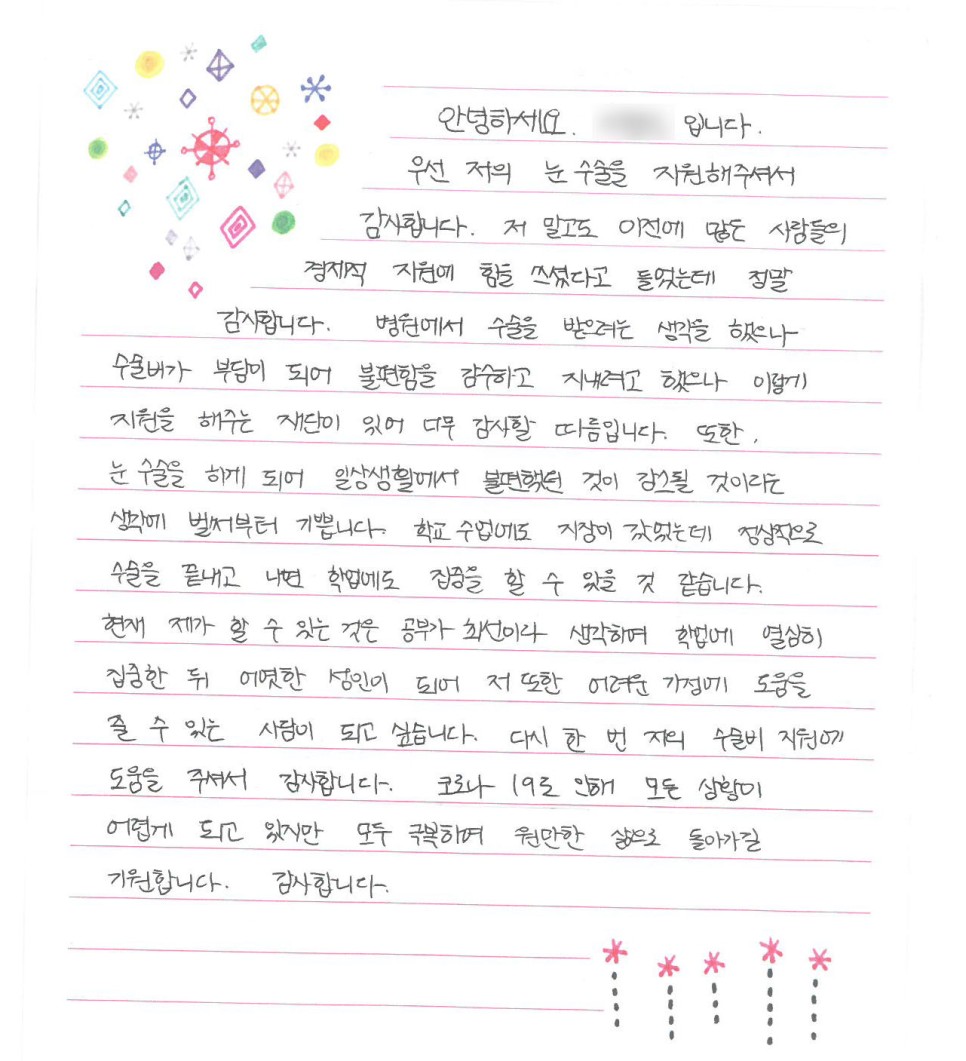 안녕하세요. 입니다.
우선 저의 눈 수술을 지원해주셔서
감사합니다. 저 말고도 이전에 많은 사람들의
경제적 지원에 힘을 쓰셨다고 들었는데 정말
감사합니다. 병원에서 수술을 받으려는 생각을 했으나
수술비가 부담이 되어 불편함을 감수하고 지내려고 했으나 이렇게
지원을 해주는 재단이 있어 너무 감사할 따름입니다. 또한,
눈 수술을 하게 되어 일상생활에서 불편했던 것이 감소될 것이라는
생각에 벌써부터 기쁩니다. 학교 수업에도 지장이 갔었는데 정상적으로
수술을 끝내고 나면 학업에도 집중을 할 수 있을 것 같습니다.
현재 제가 할 수 있는 것은 공부가 최선이라 생각하며 학업에 열심히
집중한 뒤 어엿한 성인이 되어 저 또한 어려운 가정에 도움을
줄 수 있는 사람이 되고 싶습니다. 다시 한 번 저의 수술비 지원에
도움을 주셔서 감사합니다. 코로나 19로 인해 모든 상황이
어렵게 되고 있지만 모두 극복하며 원만한 삶으로 돌아가길
기원합니다. 감사합니다.